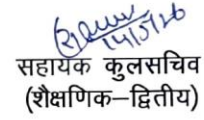 14/5/26
सहायक कुलसचिव
(शैक्षणिक–द्वितीय)